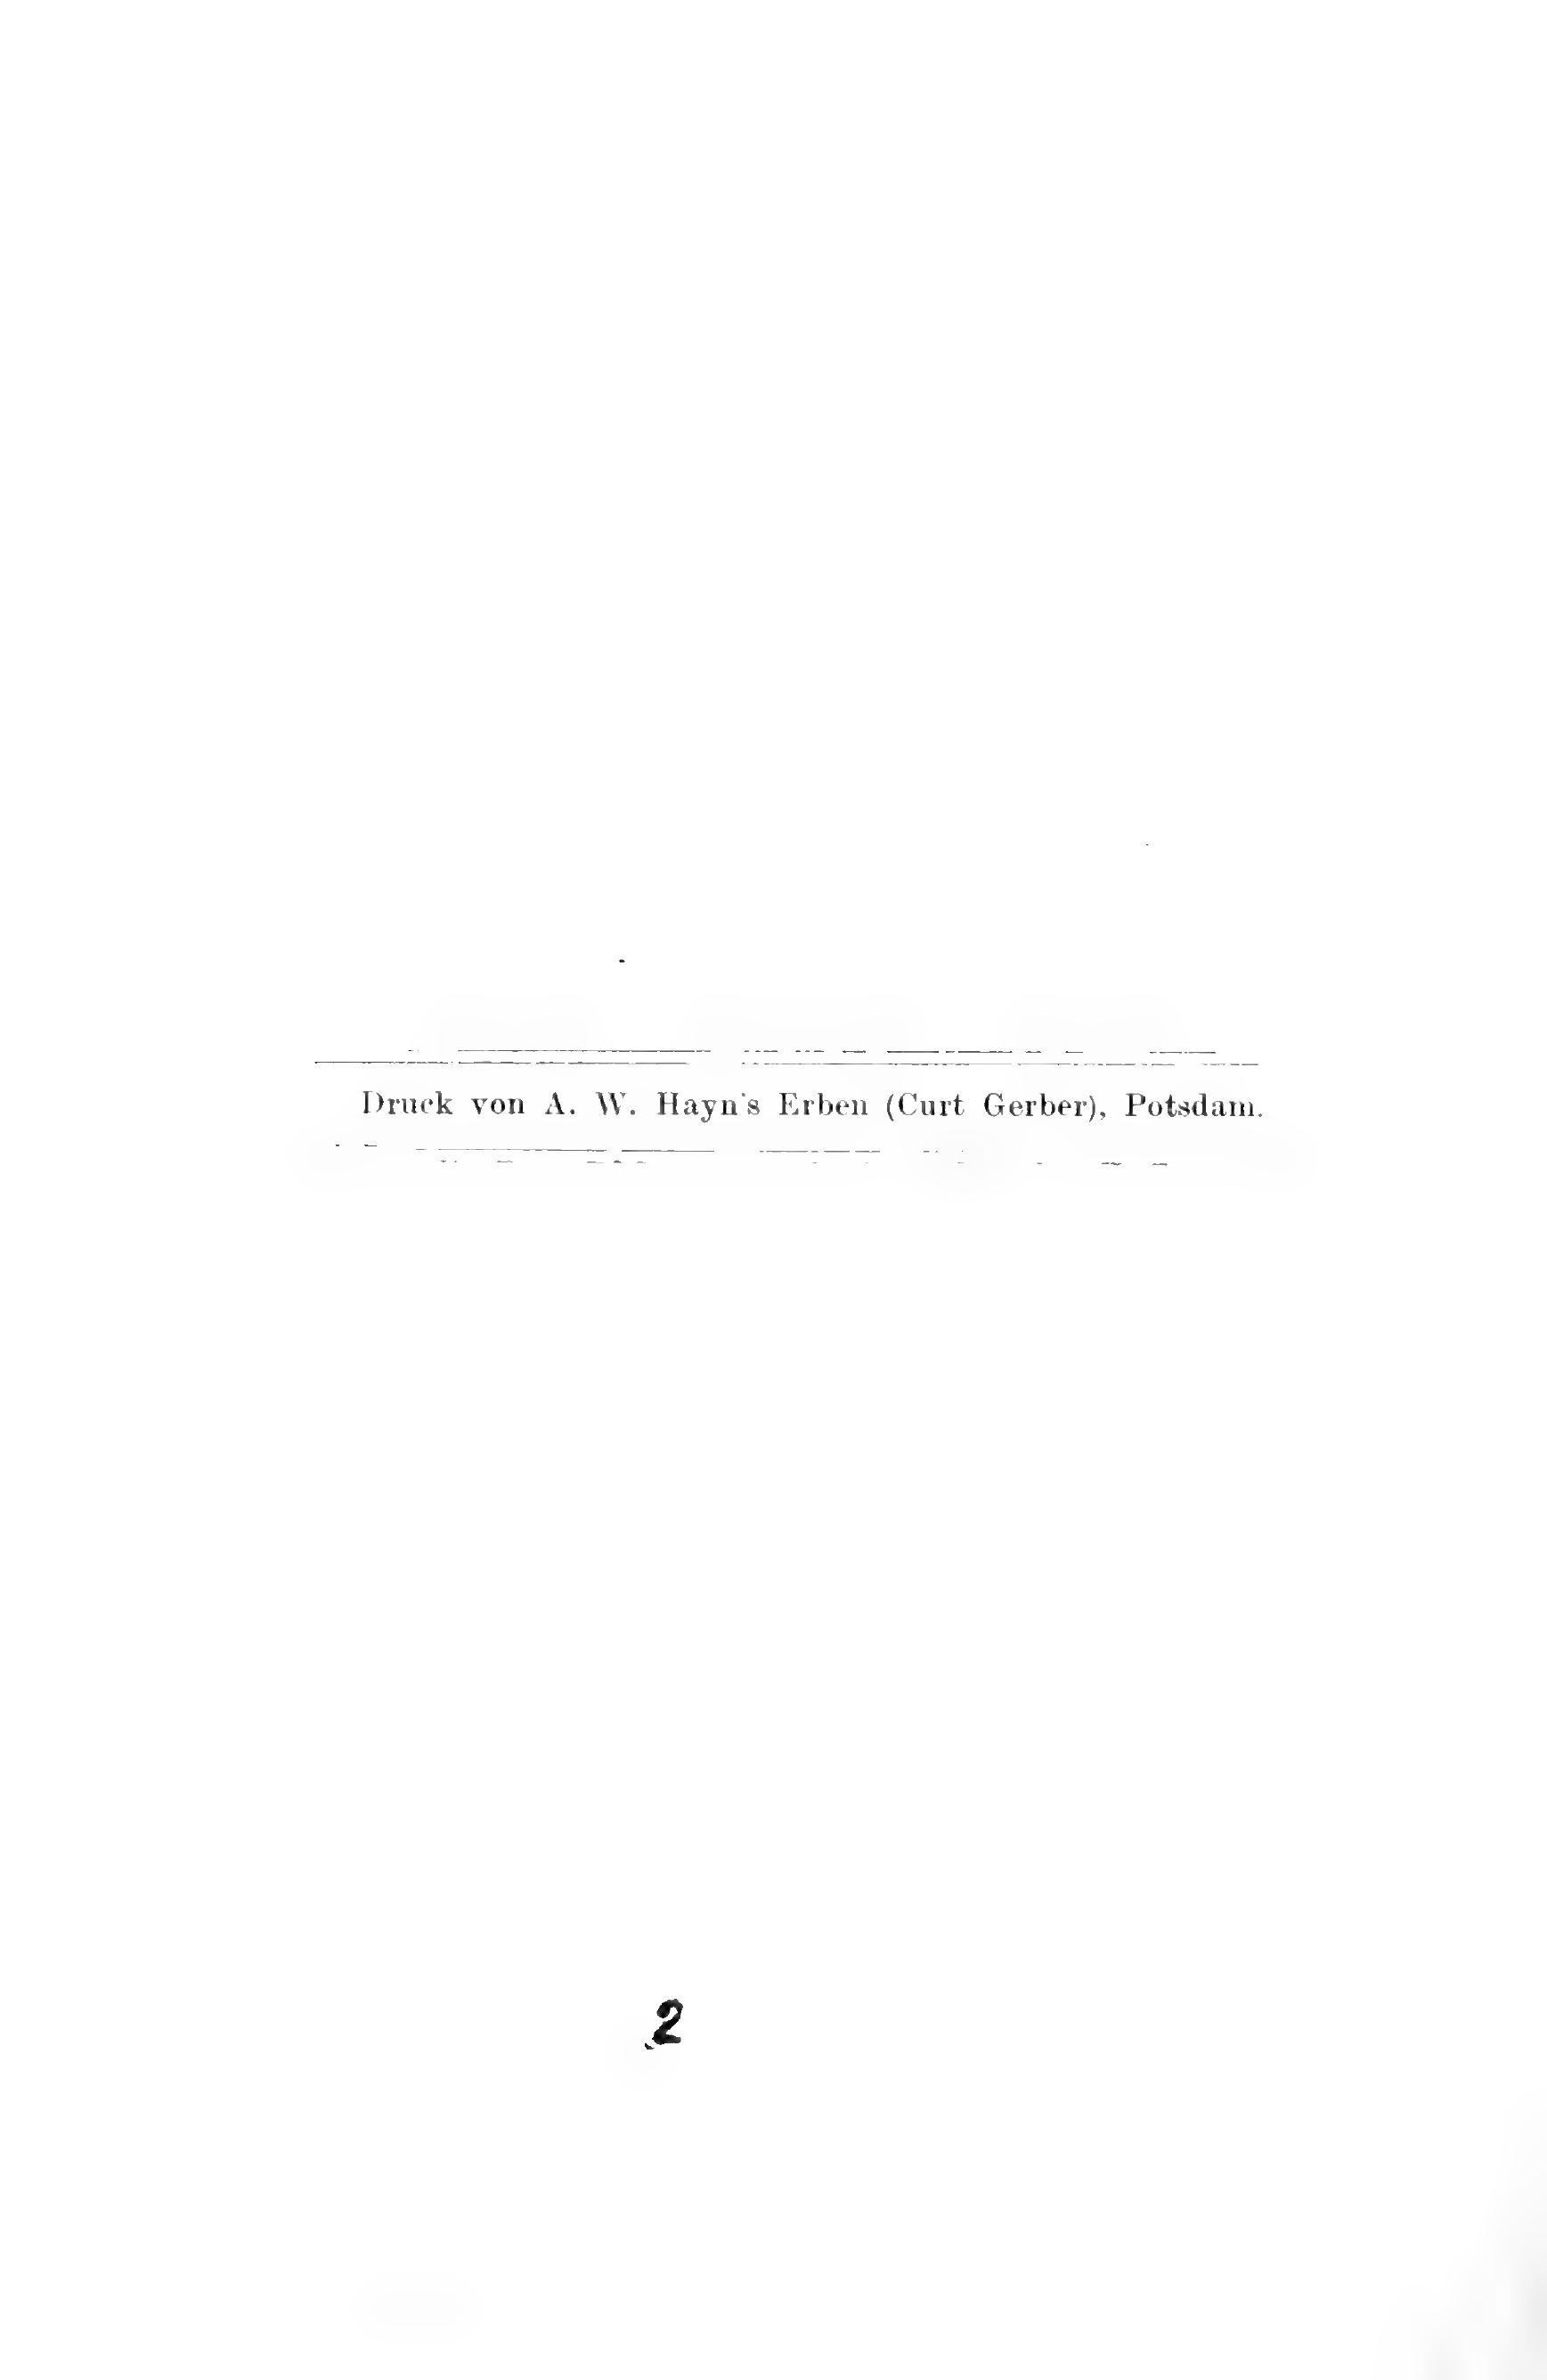 Druck von A. W. Hayn's Erben (Curt Gerber), Potsdam.
2